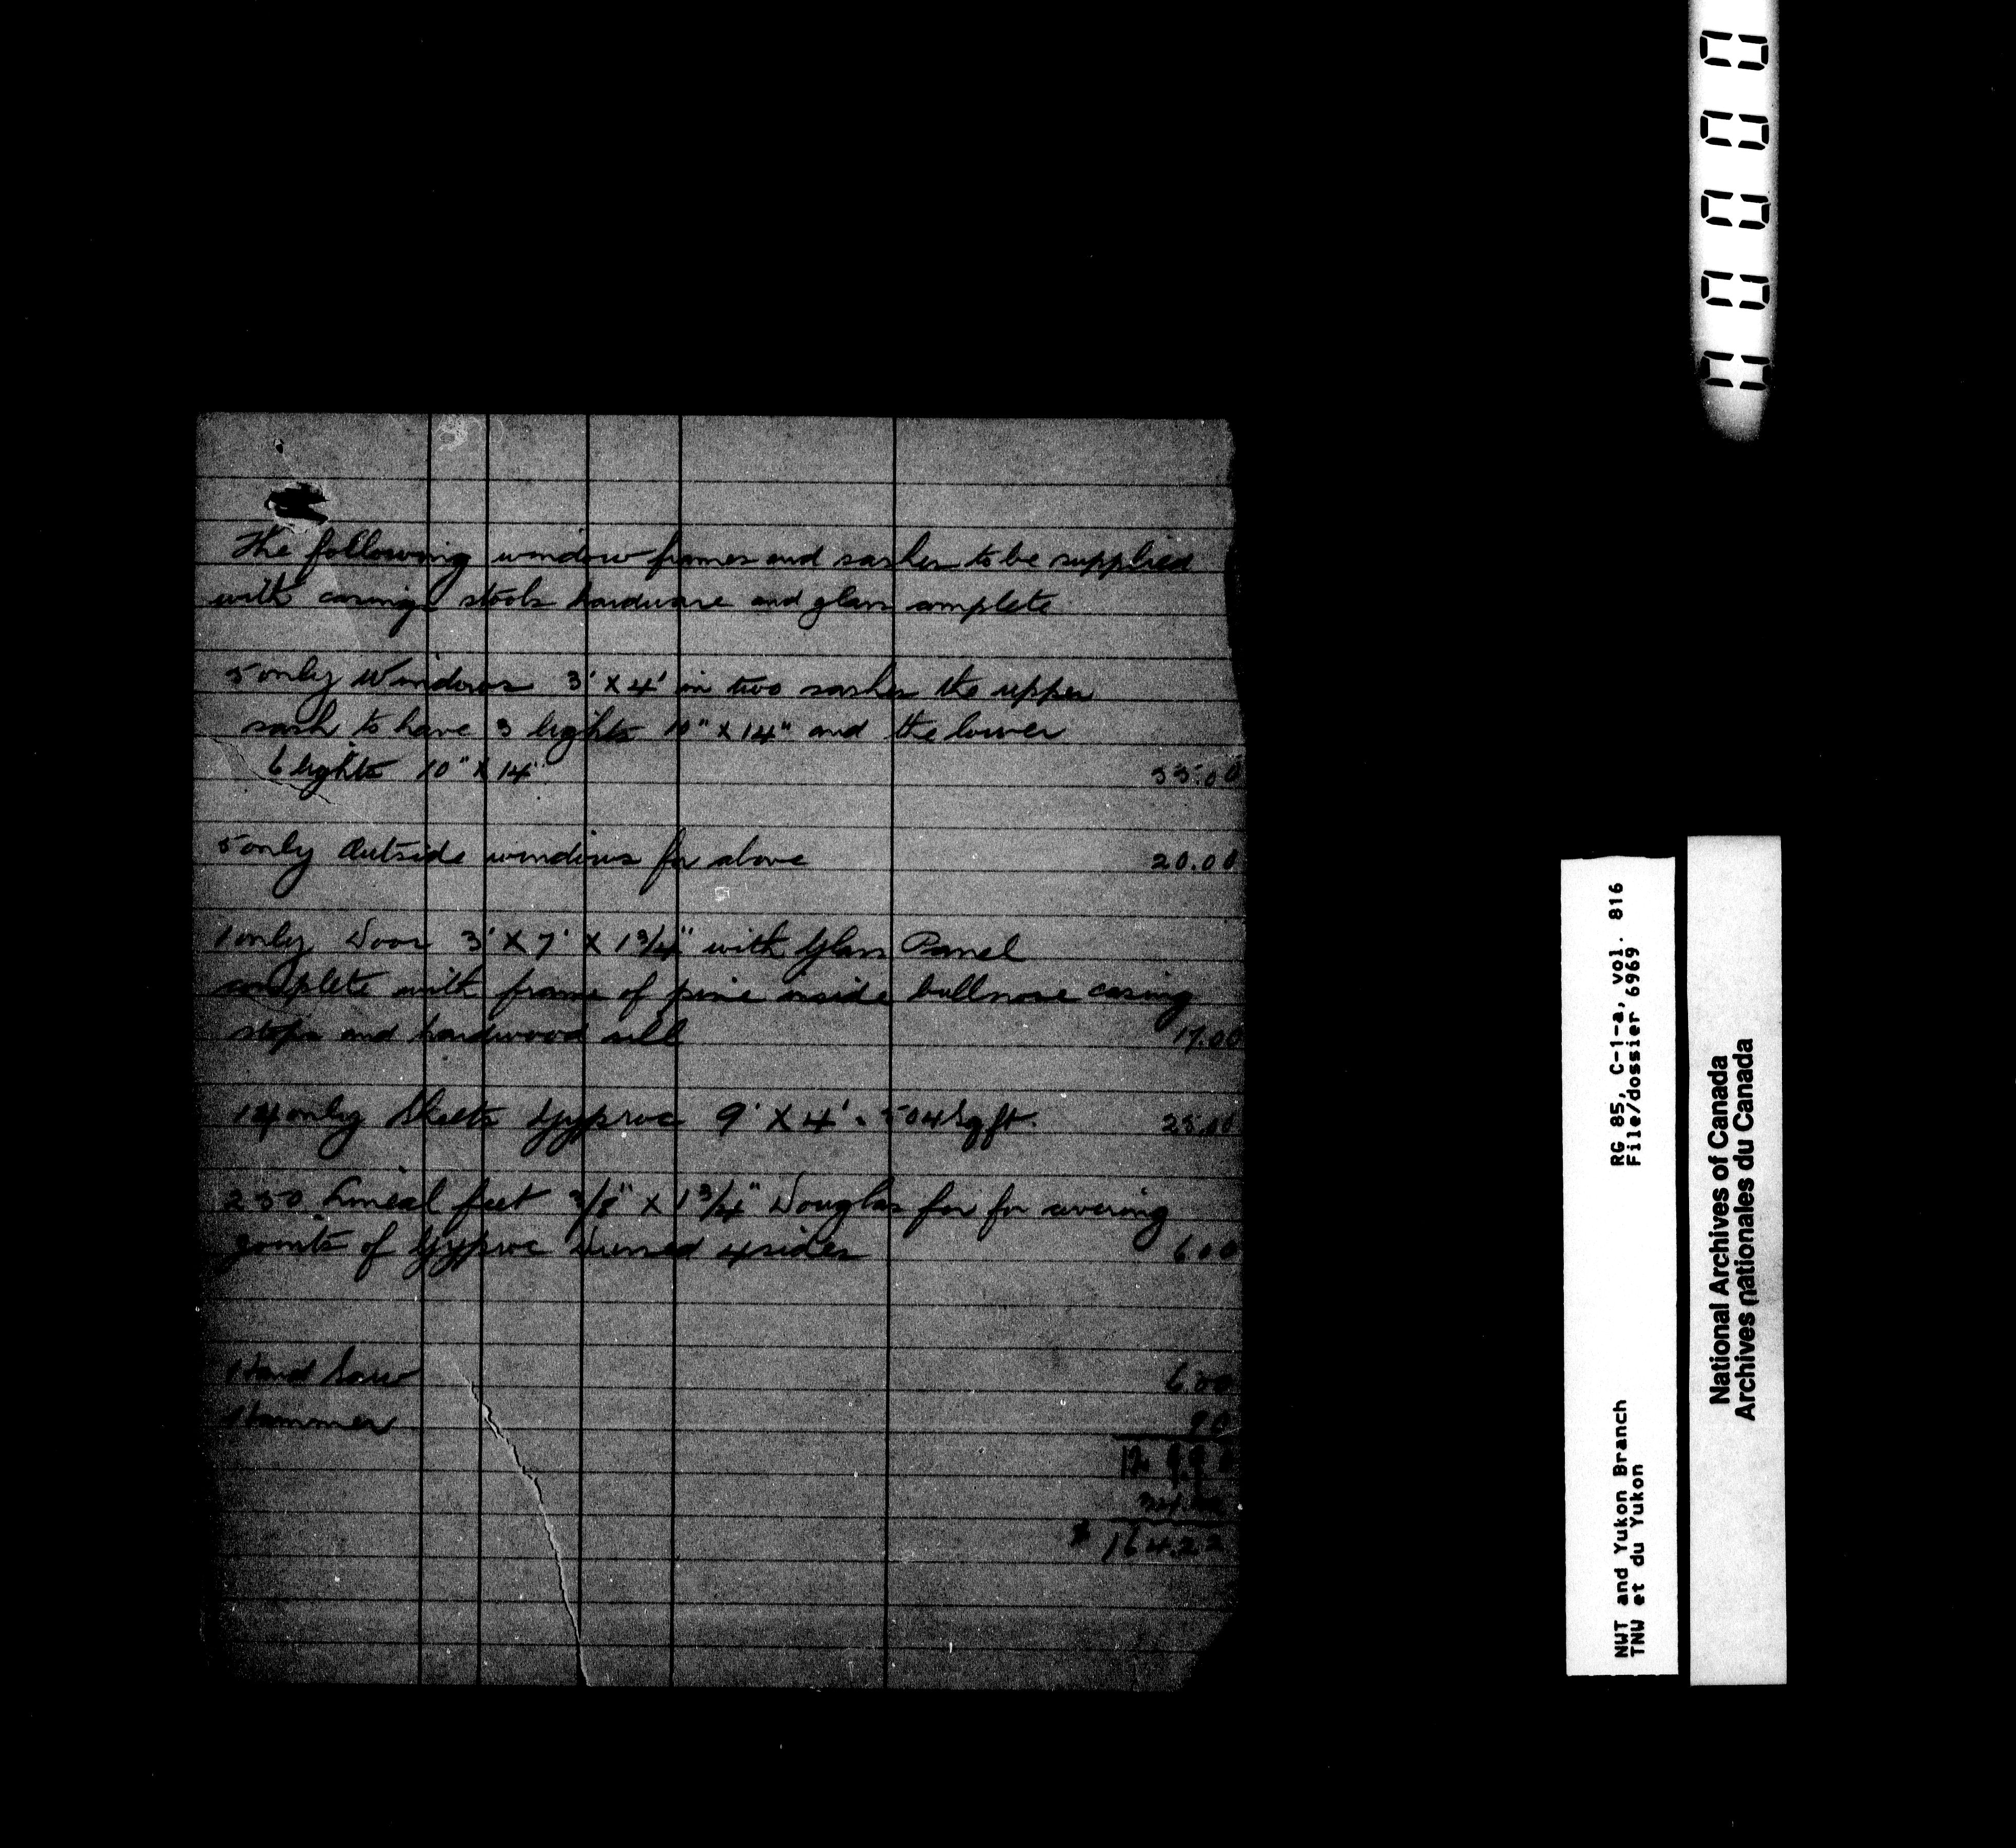 The following window frames and sashes to be supplied
with casings stools hardware and glass complete
5 only Windows 3' X 4' in two sashes the upper
sash to have 3 lights 10" X 14" and the lower
6 lights 10" X 14"
55.00
5 only Outside windows for above 20.00
1 only Door 3' X 7' X 1 3/4" with Glass Panel
complete with frame of pine inside bullnose casing
stops and hardwood sill 17.00
14 only Sheets Gyproc 9' X 4' = 504 sq ft. 25.00
250 Lineal feet 3/8" X 1 3/4" Douglas for covering
joints of Gyproc Dressed 4 sides 6.00
1 Hand Saw 6.00
1 Hammer 90
$ 164.22
RG 85, C-1-a, vol. 816
File/dossier 6969
NWT and Yukon Branch
TNW et du Yukon
National Archives of Canada
Archives nationales du Canada